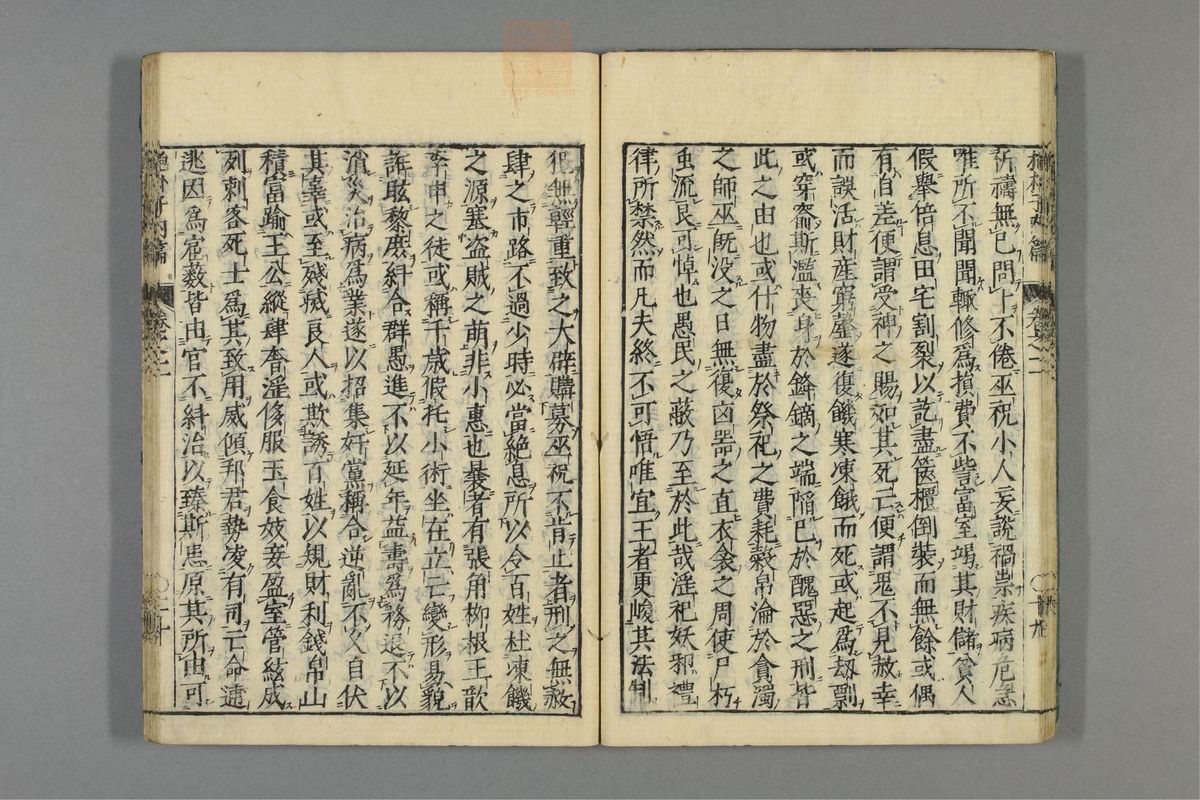 祈禱無已問卜不倦巫祝小人妄說禍祟疾病危急
唯所不聞聞輒修爲損費不訾富室竭其財儲貧人
假舉倍息田宅割裂以訖盡篋櫃倒裝而無餘或偶
有自差便謂受神之賜如其死亡便謂鬼不見赦幸
而誤活財産窮罄遂復饑寒凍餓而死或起爲刧剽
或穿窬斯濫喪身於鋒鏑之端陷已於醜惡之刑皆
此之由也或什物盡於祭祀之費耗穀帛淪於貪濁
之師巫旣没之日無復凶器之直衣衾之周使尸朽
虫流良可悼也愚民之蔽乃至於此哉淫祀妖邪禮
律所禁然而凡夫終不可悟唯宜王者更峻其法制
犯無輕重致之大辟購募巫祝不肯止者刑之無赦
肆之市路不過少時必當絕息所以令百姓杜凍饑
之源塞盗賊之萌非小惠也曩者有張角柳根王歆
李申之徒或稱千歲假托小術坐在立亡變形易貌
誑眩黎庶糾合群愚進不以延年益壽爲務退不以
消災治病爲業遂以招集奸黨稱合逆亂不久自伏
其辜或至殘滅良人或欺誘百姓以規財利錢帛山
積富踰王公縱肆奢淫侈服玉食妓妾盈室管絃成
列刺客死士爲其致用威傾邦君勢凌有司亡命逋
逃因爲窟藪皆由官不糾治以臻斯患原其所由可